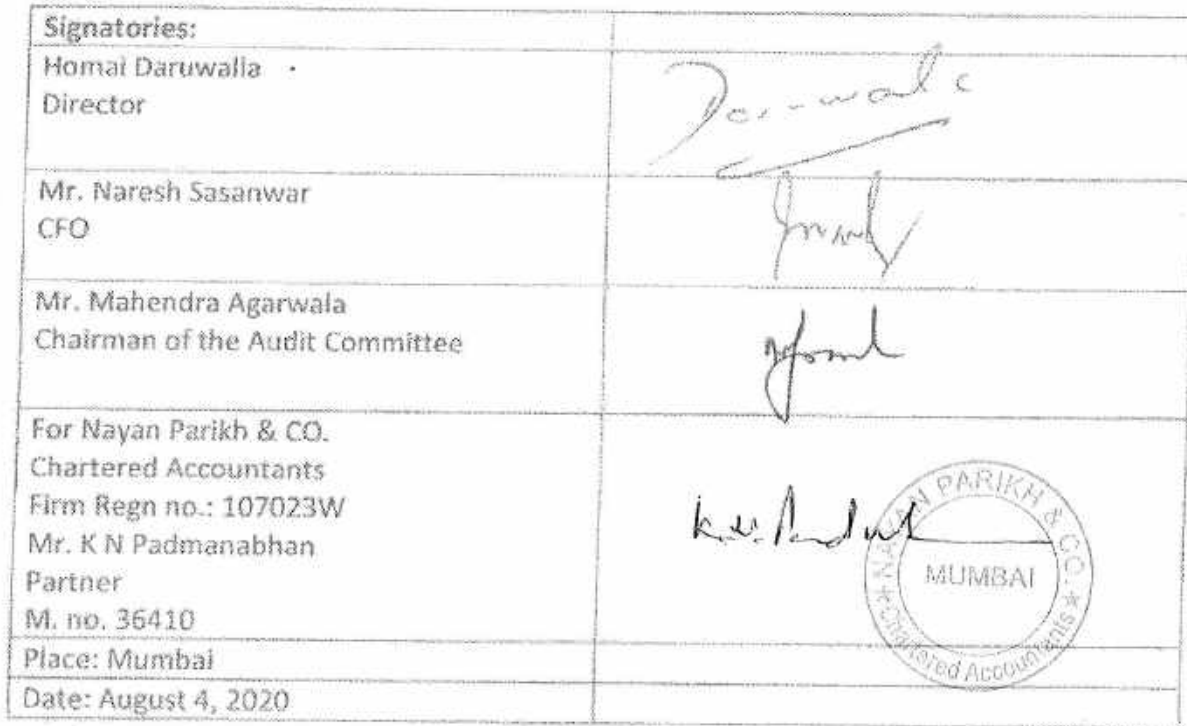 Signatories:
Homai Daruwalla
Director
Mr. Naresh Sasanwar
CFO
Mr. Mahendra Agarwala
Chairman of the Audit Committee
For Nayan Parikh & CO.
Chartered Accountants
Firm Regn no.: 107023W
Mr. K N Padmanabhan
Partner
M. no. 36410
NAYAN PARIKH & CO.
MUMBAI
* Chartered Accountants *
Place: Mumbai
Date: August 4, 2020